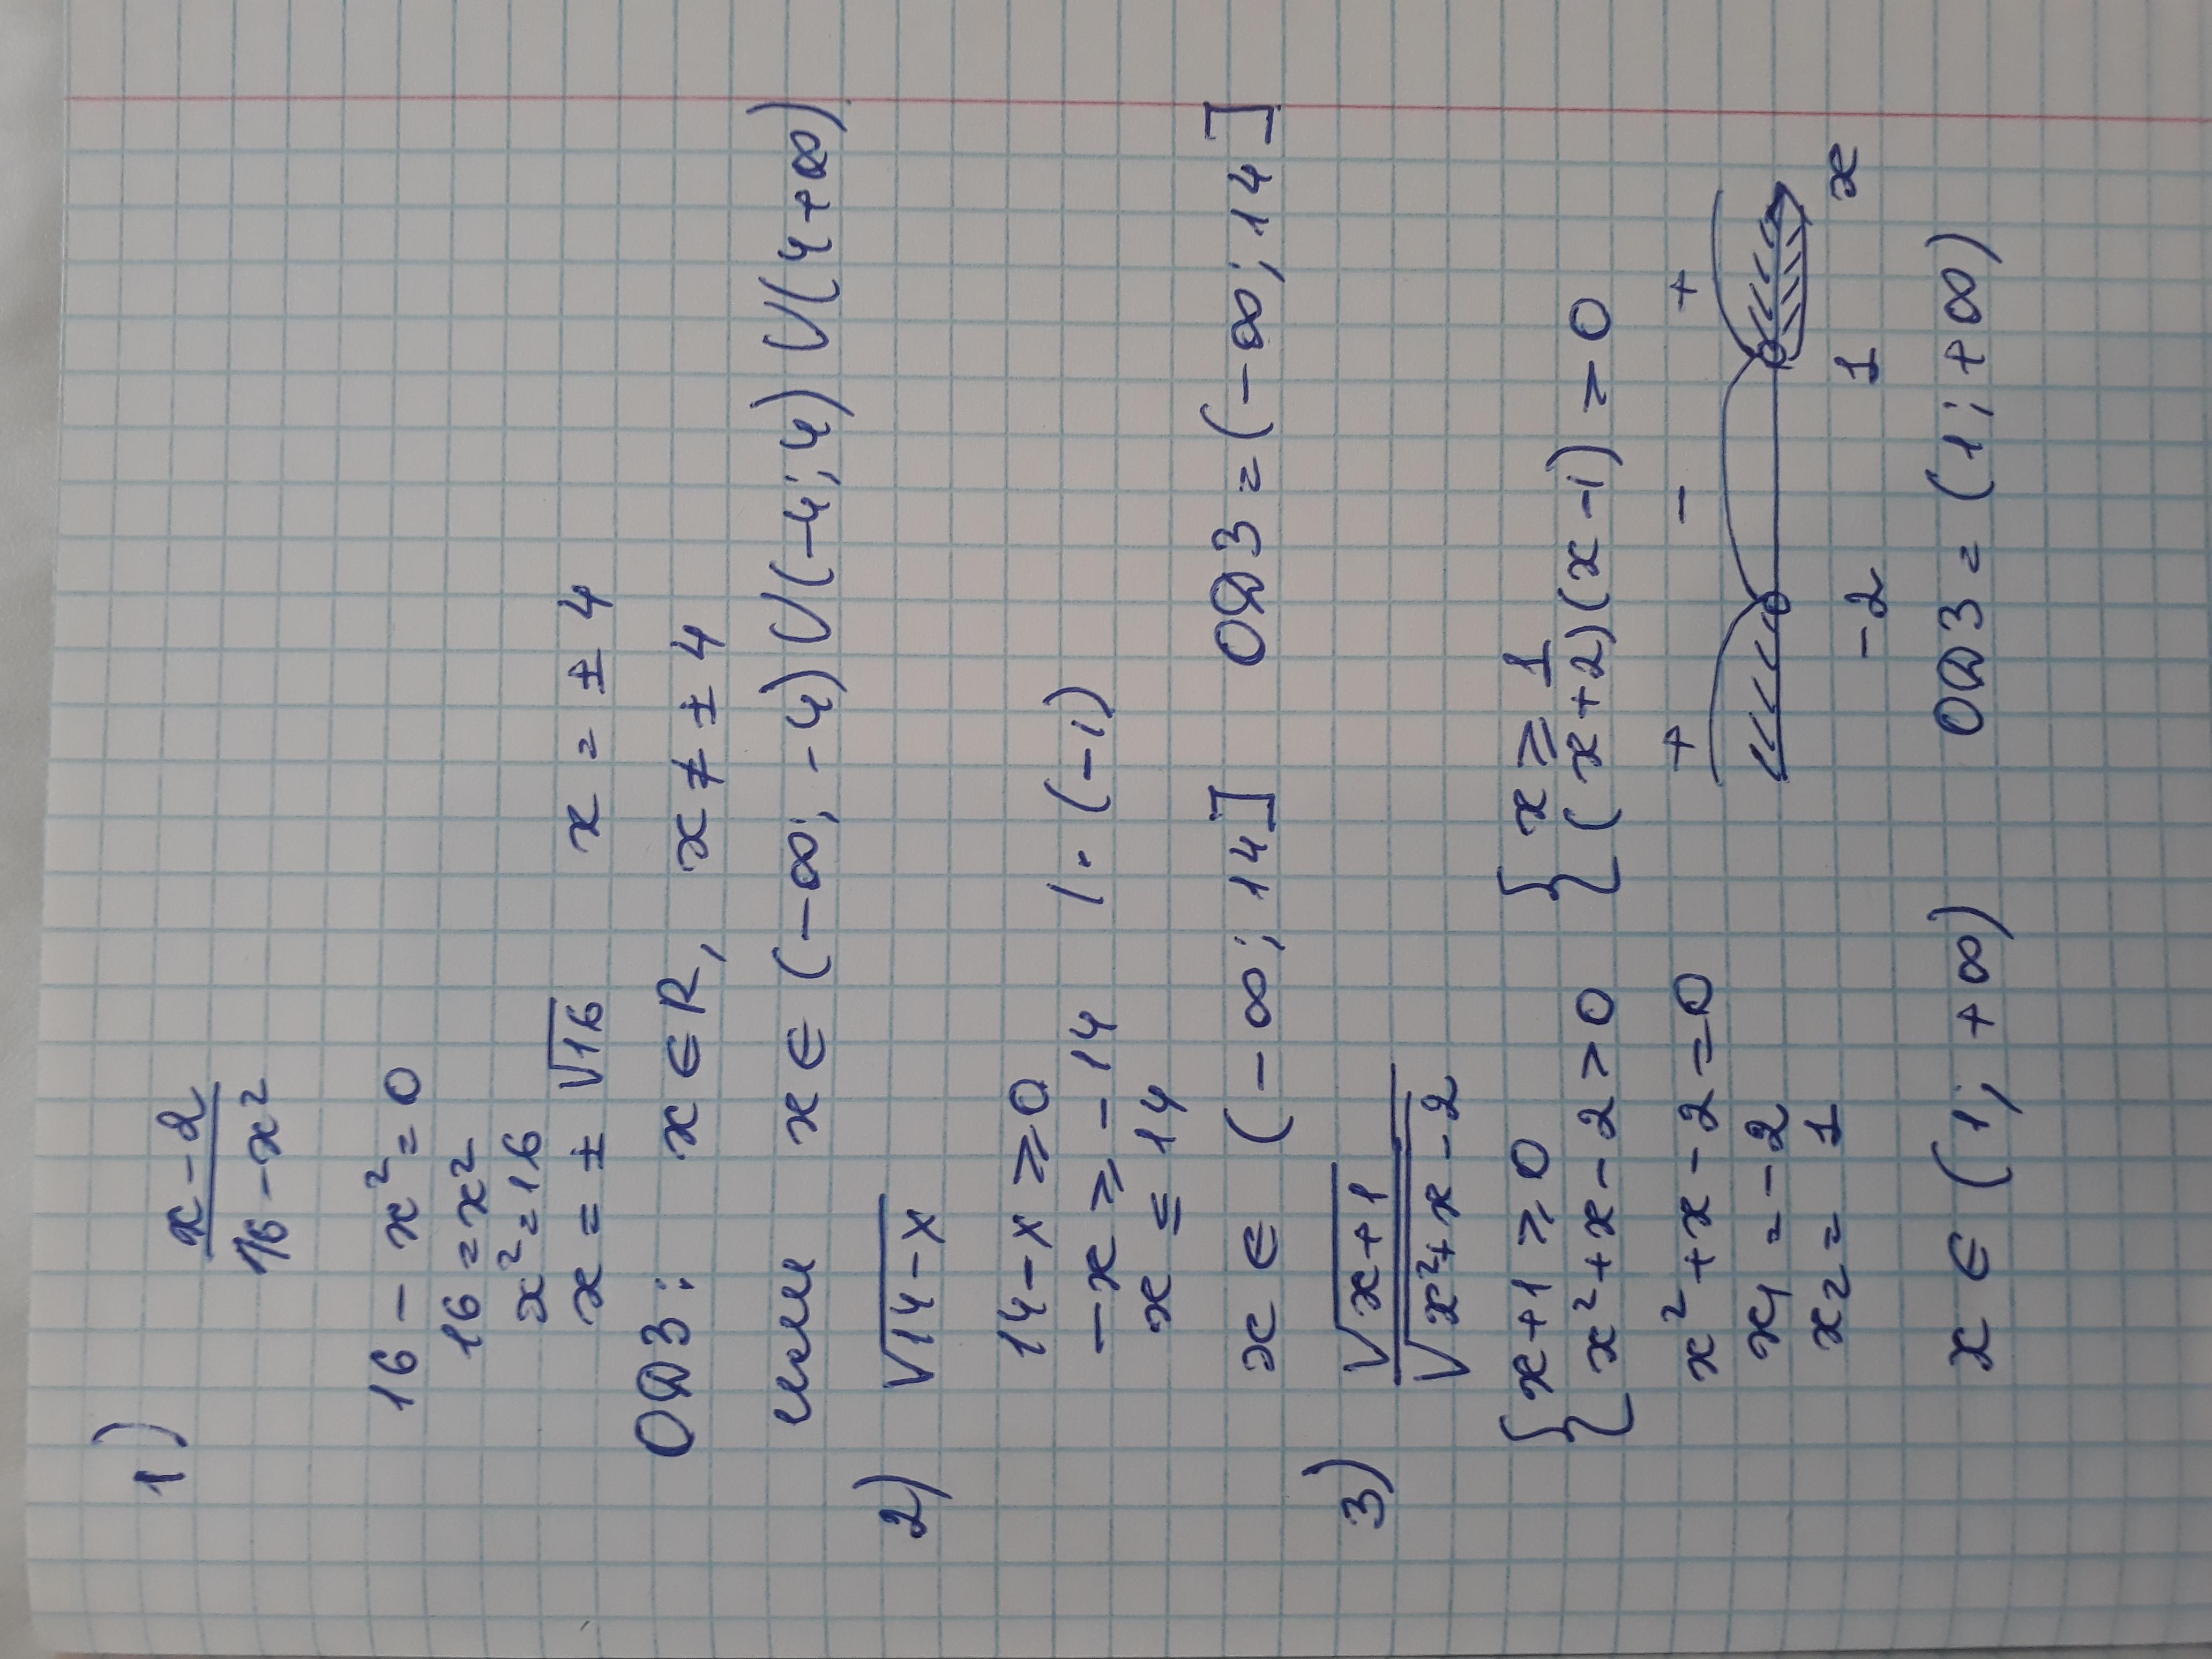 1) (x-2)/(16-x²)
16 - x² = 0
16 = x²
x² = 16
x = ± √16 x = ± 4
ОДЗ: x ∈ R, x ≠ ± 4
или x ∈ (-∞; -4) ∪ (-4; 4) ∪ (4 +∞)
2) √(14-x)
14 - x ≥ 0
-x ≥ -14 | · (-1)
x ≤ 14
x ∈ (-∞; 14] ОДЗ = (-∞; 14]
3) √(x+1) / √(x²+x-2)
{ x+1 ≥ 0 { x ≥ 1
{ x²+x-2 > 0 { (x+2)(x-1) > 0
x²+x-2=0 + - +
x₁ = -2
x₂ = 1 -2 1 x
x ∈ (1; +∞) ОДЗ = (1; +∞)